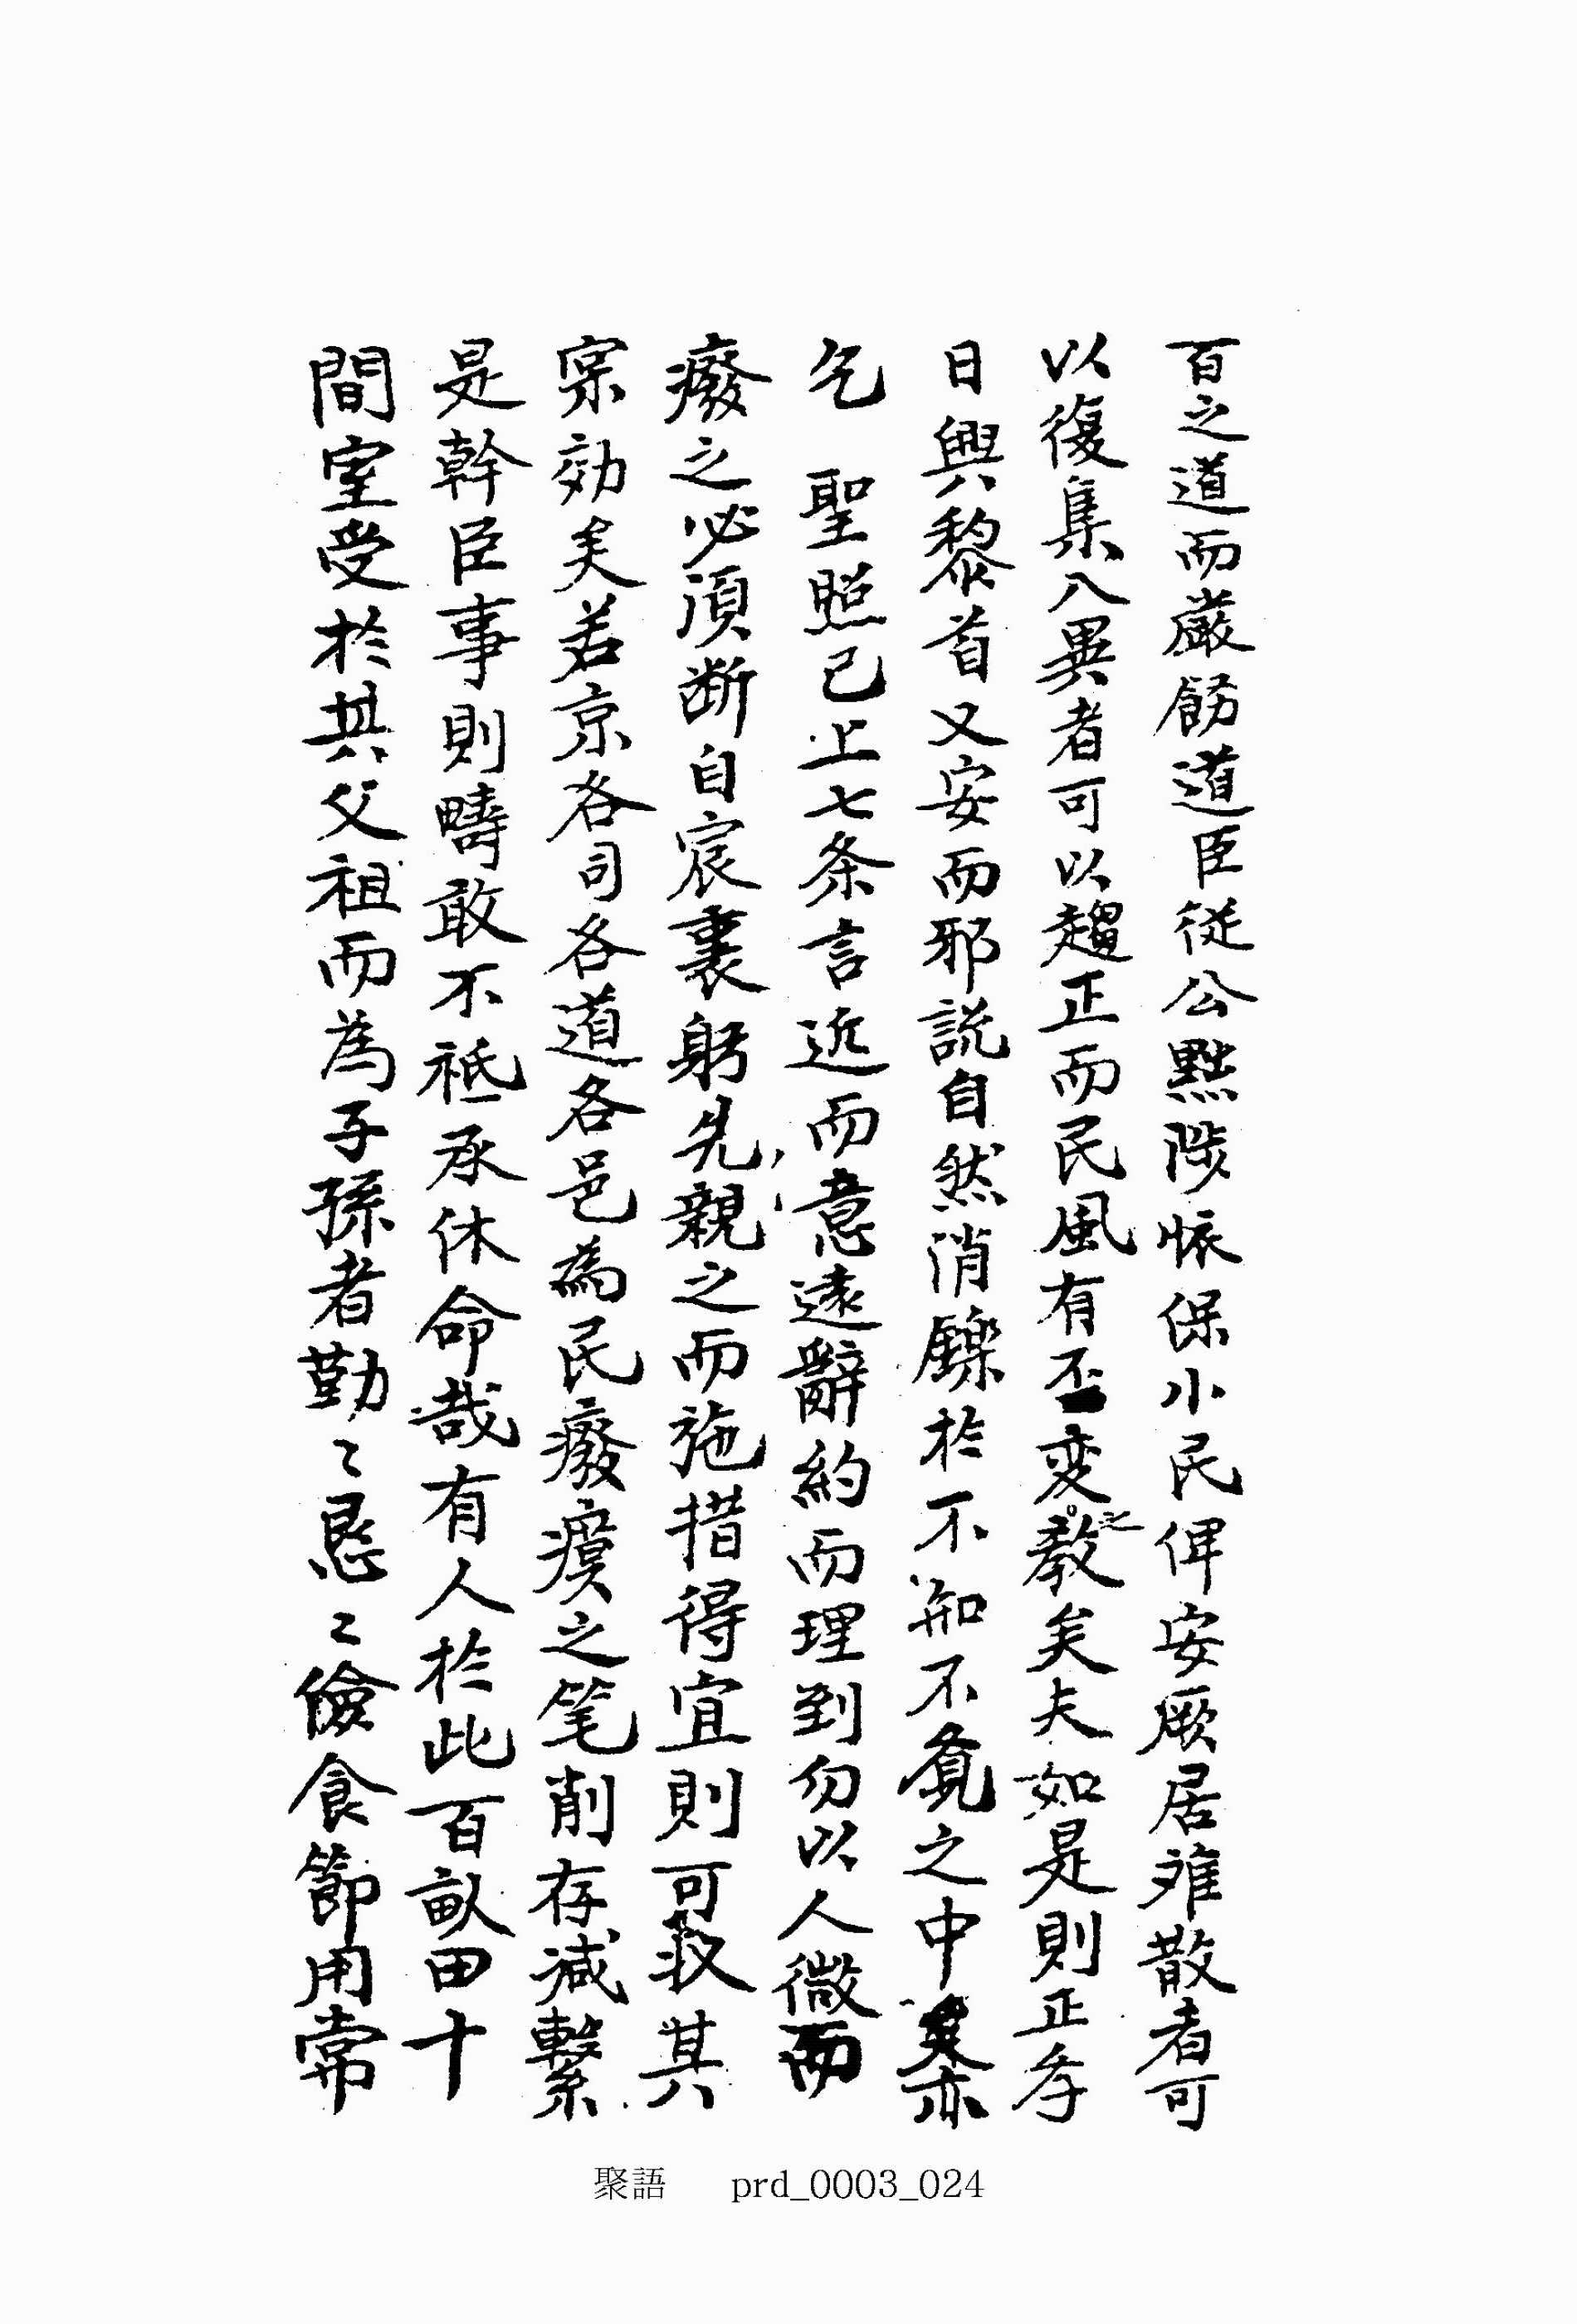 百之道而嚴飭道臣従公黜陟恢保小民俾安厥居难散者可
以復集入異者可以趨正而民風有丕変之教矣夫如是則正孝
日興黎首又安而邪説自然消鑠於不知不覓之中矣亦
乞 聖照已上七条言近而意遠辭約而理到勿以人微而
癈之必湏断自宸裏躬先親之而施措得宜則可収其
宲効矣若京各司各道各邑為民癈瘼之笔削存减繫
是幹臣事則疇敢不祗承休命哉有人於此百畝田十
間室受於其父祖而為子孫者勤〻懇〻儉食節用常
聚語 prd_0003_024